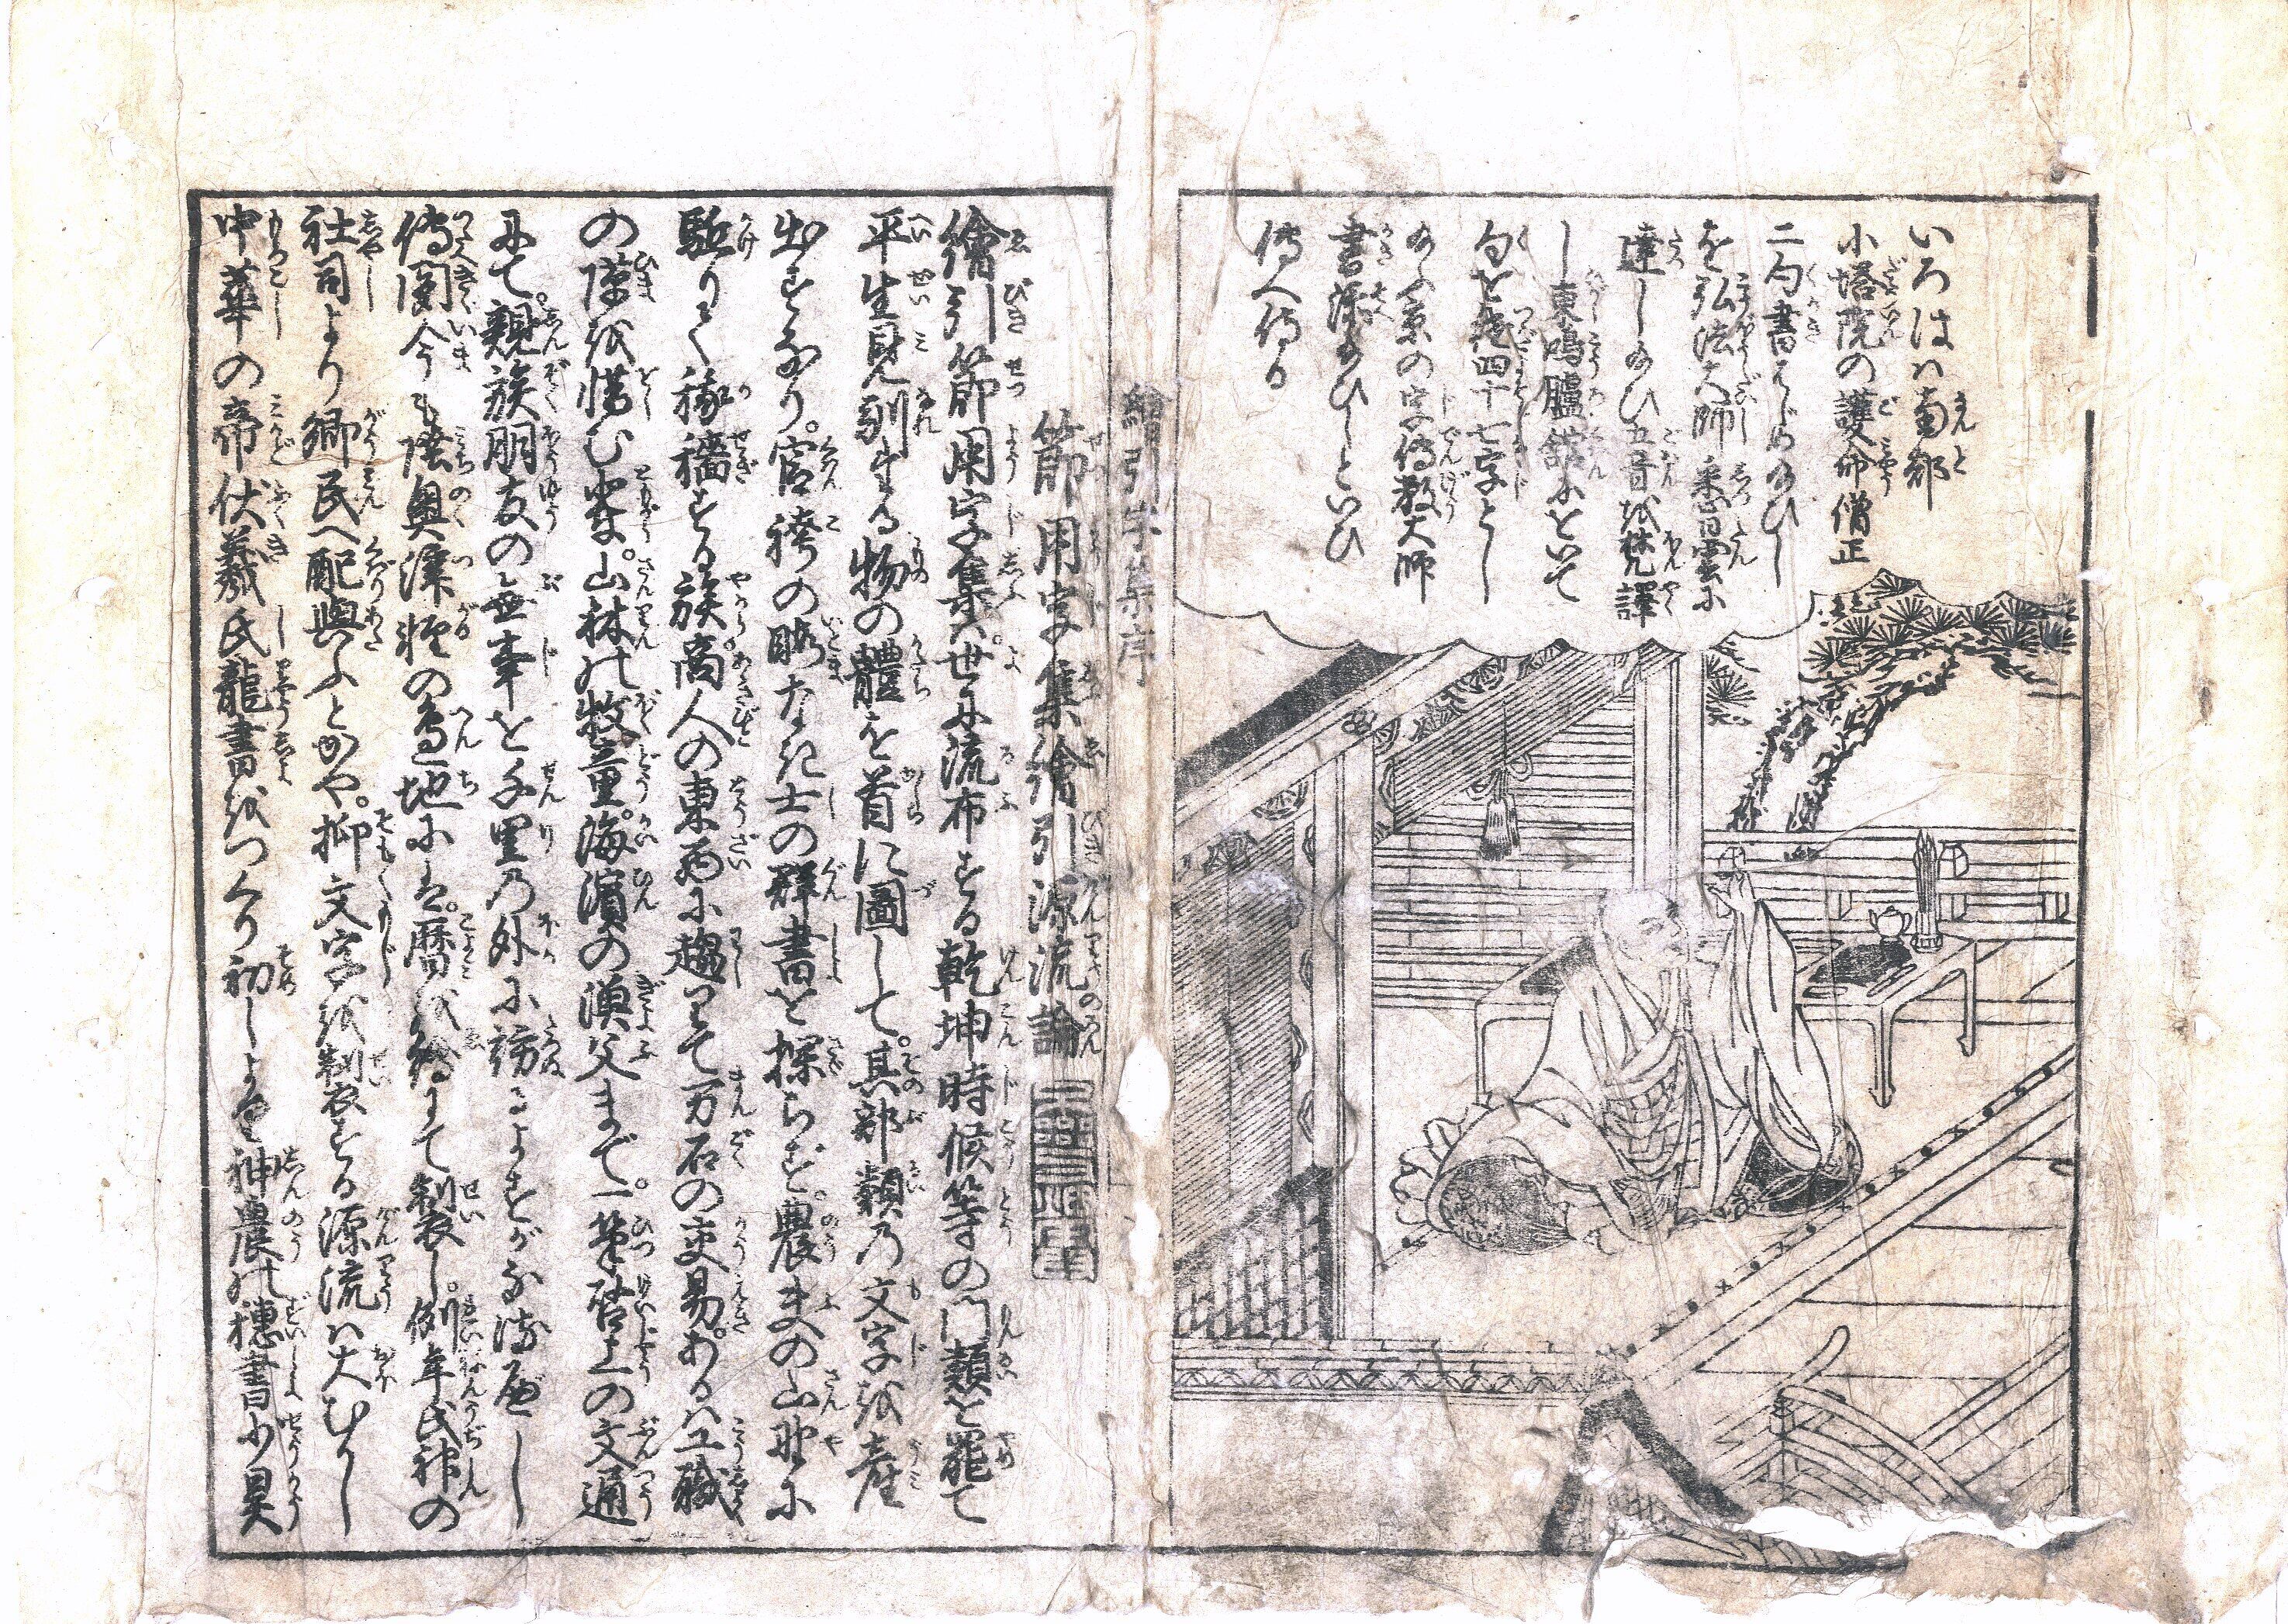 いろはハ南都
小塔院の護命僧正
二句書はじめ給ひし
を弘法大師 乗雲に
達し給ひ五音を梵譯
し 東鴻臚舘にをいて
句を 四十七字とし
給ふ京の字傳教大師
書添給ひしといひ
傳へ侍る
繪引字集序
節用字集繪引源流論
繪引節用字集ハ世に流布する乾坤時候等の門類を罷て
平生見馴する物の體を首に圖して。其部類乃文字を産
出すなり。官袴の暇なき士の群書を探らず。農夫の山野に
駈りて稼穡する族。商人の東西に趨りて万石の交易。あるハ工職
の隙を惜む輩。山林の牧童。海濱の漁父まで。一筆啓上の文通
にて。親族朋友の無事を千里乃外に訪ふよすがなるべし
傳聞今も陸奥津軽の辺地にハ。暦を繪にて製し。例年氏神の
社司より郷民へ配與ふとかや。抑文字を製する源流ハ大むかし
中華の帝伏羲氏龍書をつくり初しより神農の穂書少昊